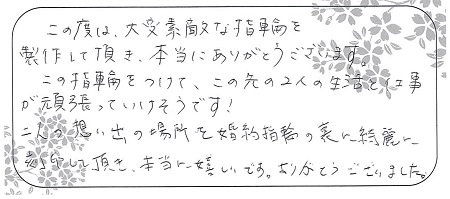 この度は、大変素敵な指輪を
製作して頂き、本当にありがとうございます。
この指輪をつけて、この先の2人の生活と仕事
が頑張っていけそうです!
二人の想い出の場所を婚約指輪の裏に綺麗に
刻印して頂き、本当に嬉しいです。ありがとうございました。